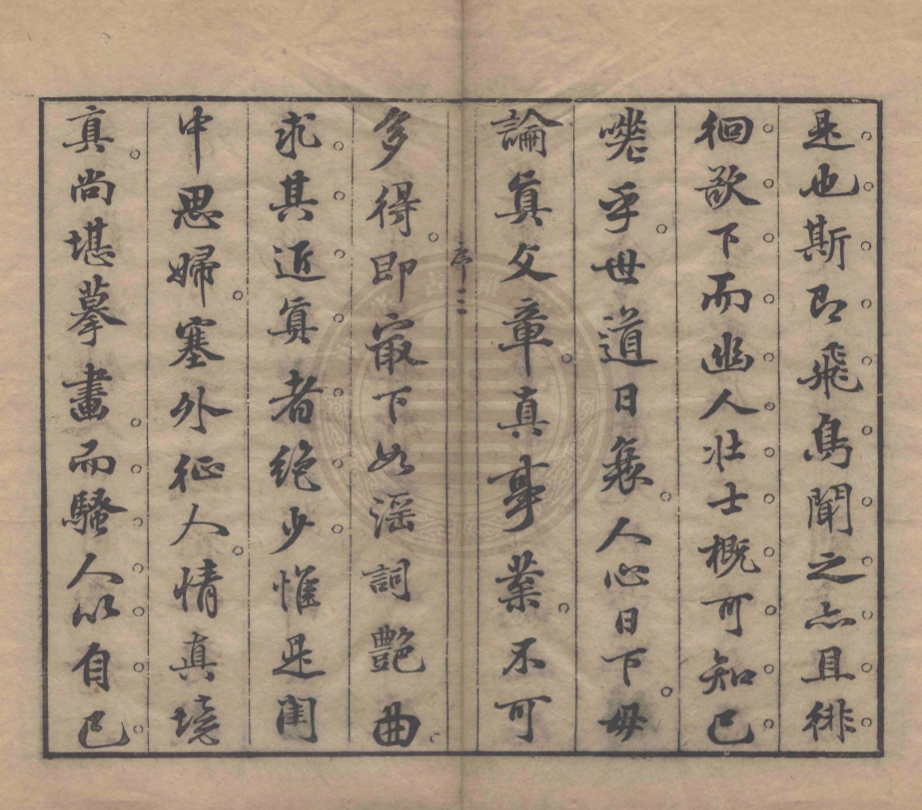 是也斯即飛鳥聞之亦且徘
徊歛下而幽人壯士概可知已
嗟乎世道日衰人心日下毋
論眞文章真事業不可
序三
多得即寂下如滛詞艷曲
求其近眞者絕少惟是閨
中思婦塞外征人情真境
真尚堪摹畫而騷人以自已